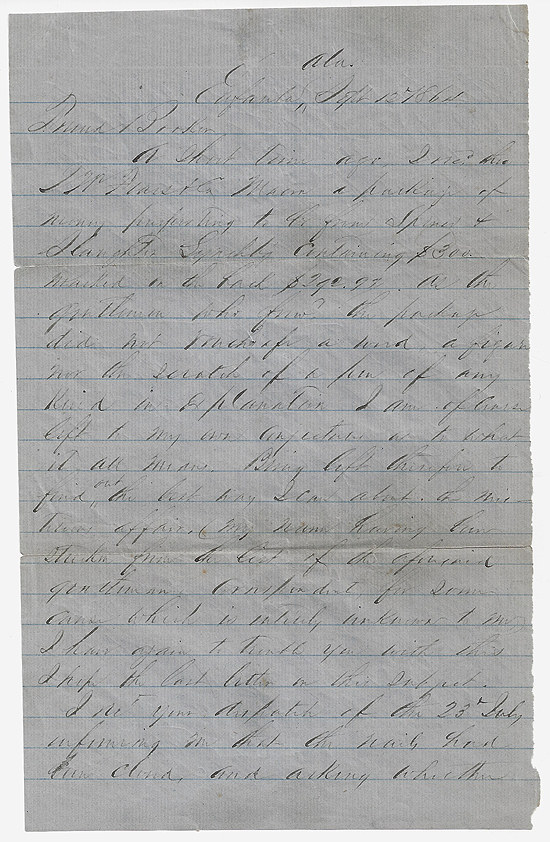 Ala.
Eufaula, Sept 12th 1864
Friend Booker
A short time ago I recd
& Co Macon a package of
money purporting to be from Spence &
Lynchbg containing $300
marked on the back $290.92. As the
gentleman who the package
did not vouchsafe a word, a figure
nor the scratch of a pen of any
kind in explanation I am of course
left to my own conjectures as to what
it all means. Being left therefore to
find out the best way I can about the mys-
terious affair, (my name having been
stricken from the list of the aforesaid
gentleman's correspondents, for some
cause which is entirely unknown to me)
I have again to trouble you with this
I hope the last letter on this subject.
I recd your despatch of the 23rd July
informing me that the had
been and asking whether